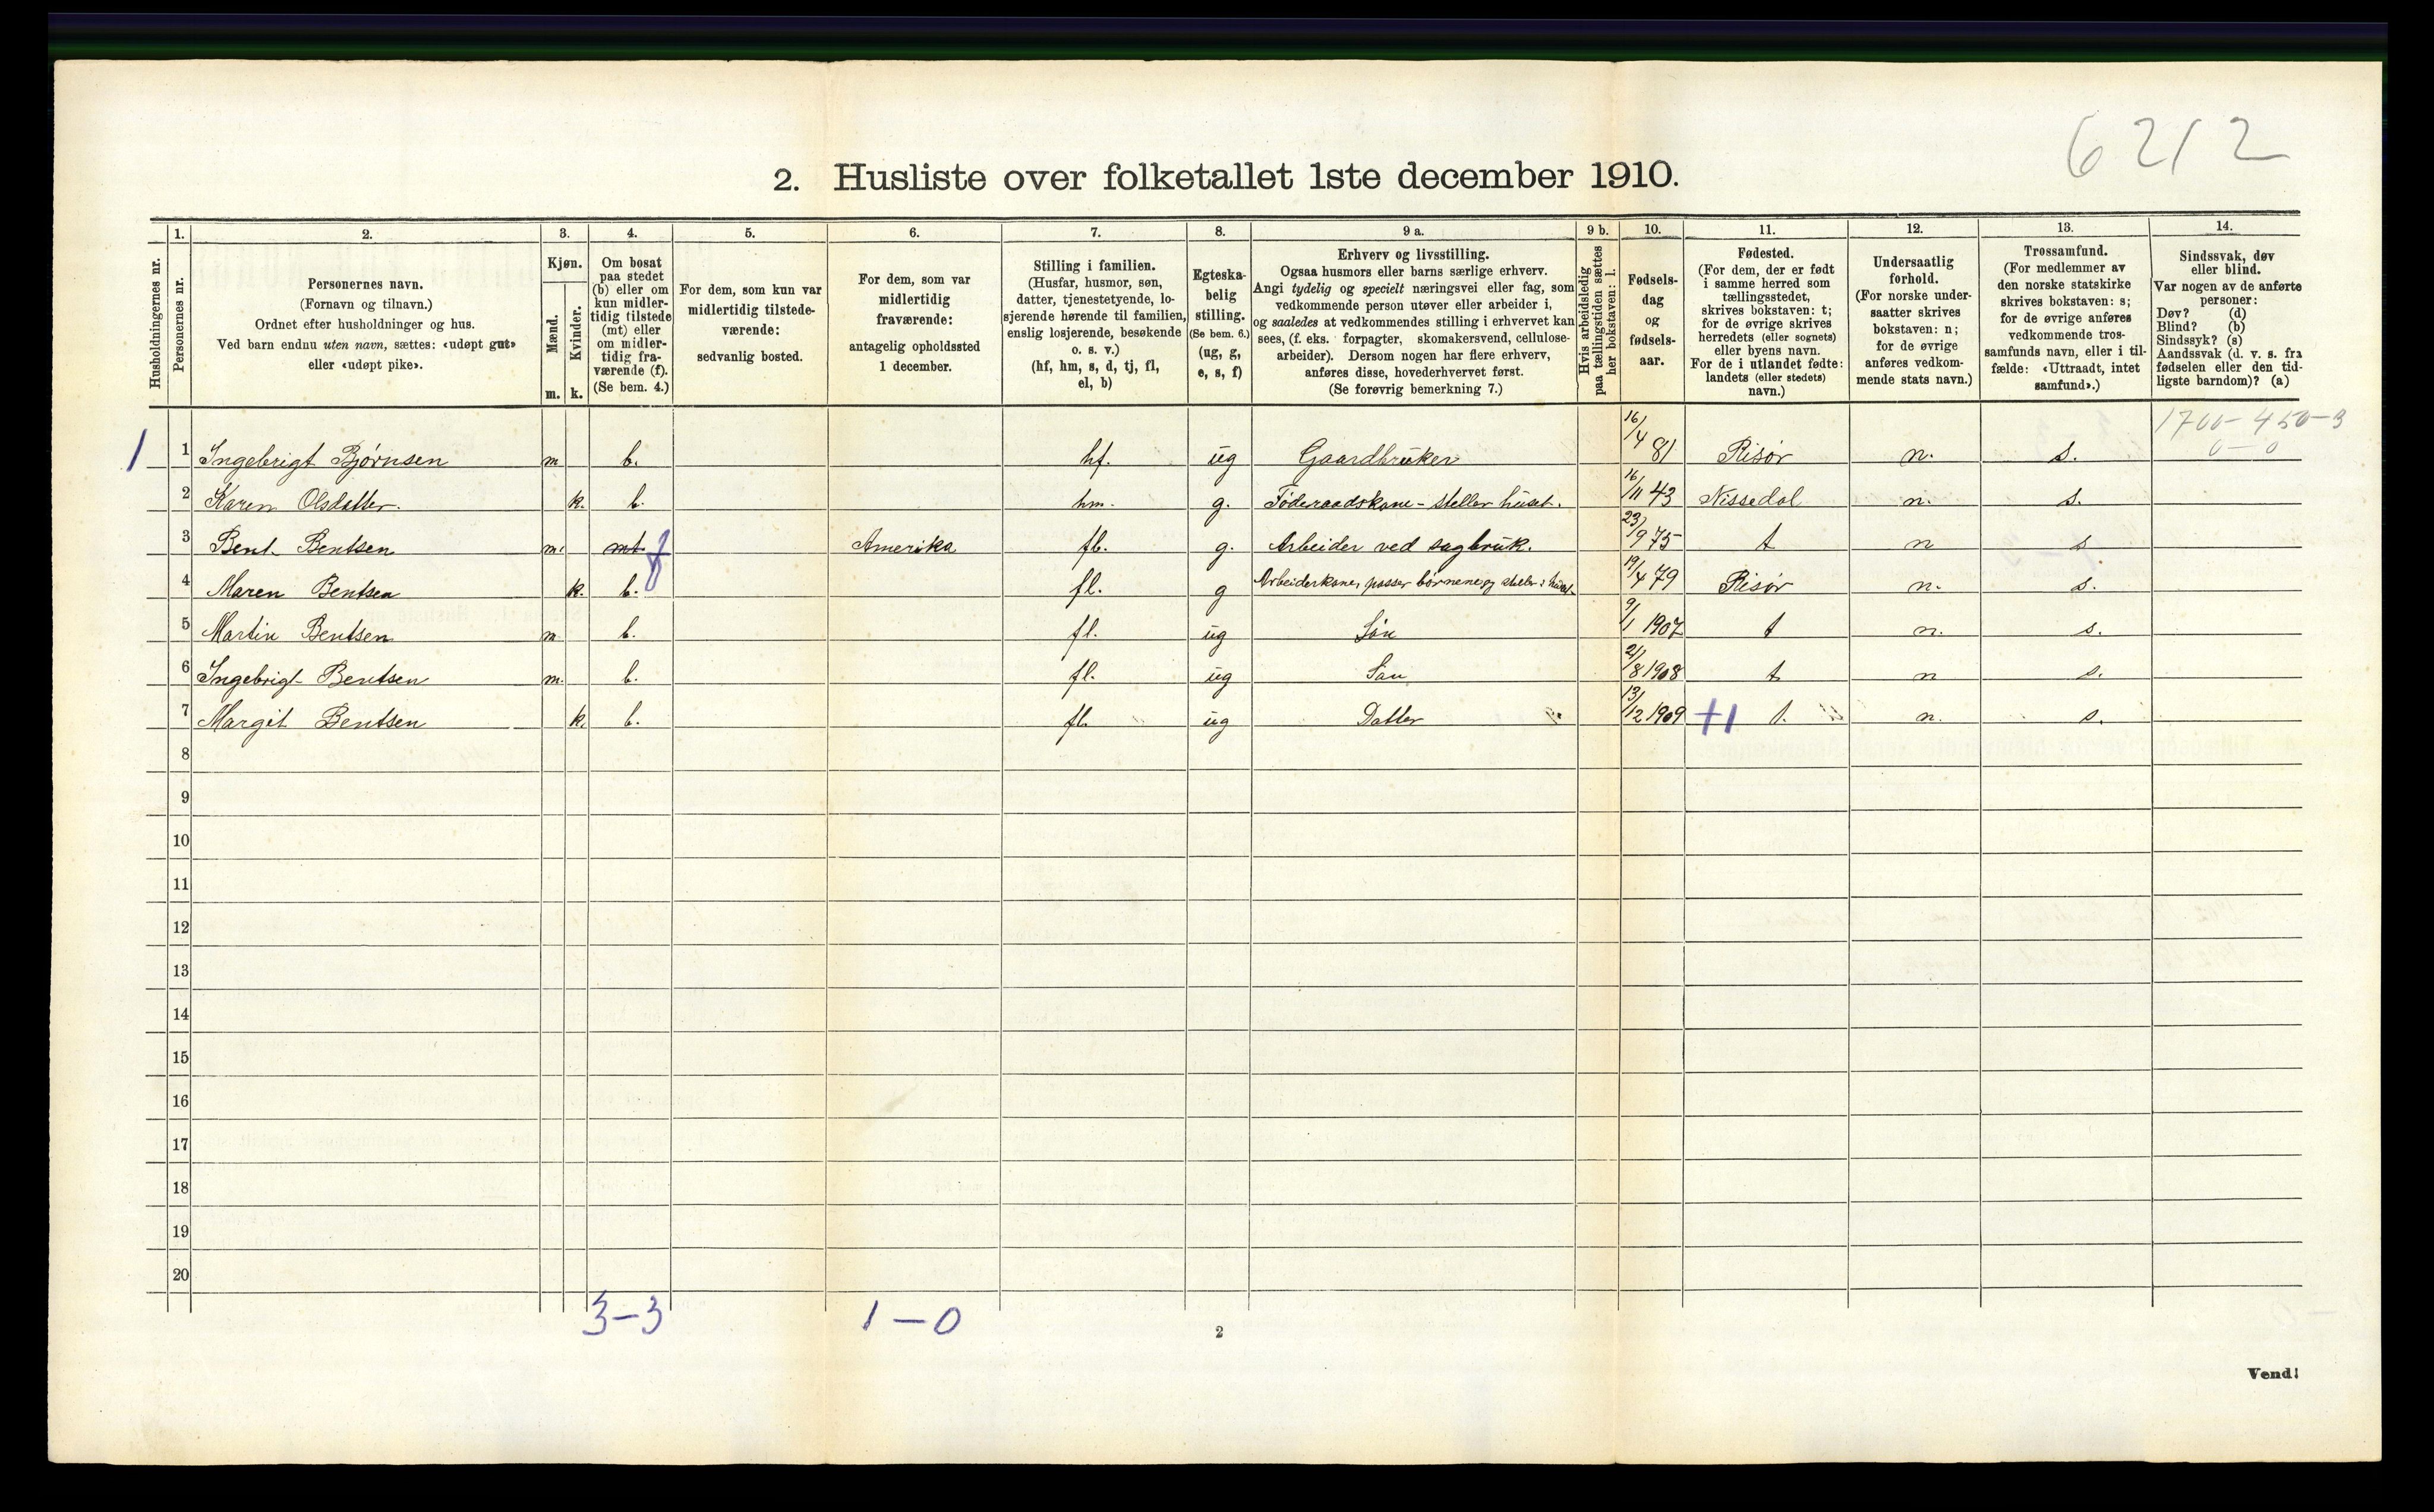 6212
2. Husliste over folketallet 1ste december 1910.
1. 2. 3. 4. 5. 6. 7. 8. 9 a. 9 b. 10. 11. 12. 13. 14.
Husholdningernes nr.
Personernes nr.
Personernes navn.
(Fornavn og tilnavn.)
Ordnet efter husholdninger og hus.
Ved barn endnu uten navn, sættes: «udøpt gut»
eller «udøpt pike».
Kjøn.
Mænd.
Kvinder.
m. k.
Om bosat
paa stedet
(b) eller om
kun midler-
tidig tilstede
(mt) eller
om midler-
tidig fra-
værende (f).
(Se bem. 4.)
For dem, som kun var
midlertidig tilstede-
værende:
sedvanlig bosted.
For dem, som var
midlertidig
fraværende:
antagelig opholdssted
1 december.
Stilling i familien.
(Husfar, husmor, søn,
datter, tjenestetyende, lo-
sjerende hørende til familien,
enslig losjerende, besøkende
o. s. v.)
(hf, hm, s, d, tj, fl,
el, b)
Egteska-
belig
stilling.
(Se bem. 6.)
(ug, g,
e, s, f)
Erhverv og livsstilling.
Ogsaa husmors eller barns særlige erhverv.
Angi tydelig og specielt næringsvei eller fag, som
vedkommende person utøver eller arbeider i,
og saaledes at vedkommendes stilling i erhvervet kan
sees, (f. eks. forpagter, skomakersvend, cellulose-
arbeider). Dersom nogen har flere erhverv,
anføres disse, hovederhvervet først.
(Se forøvrig bemerkning 7.)
Hvis arbeidsledig
paa tællingstiden sættes
her bokstaven: l.
Fødsels-
dag
og
fødsels-
aar.
Fødested.
(For dem, der er født
i samme herred som
tællingsstedet,
skrives bokstaven: t;
for de øvrige skrives
herredets (eller sognets)
eller byens navn.
For de i utlandet fødte:
landets (eller stedets)
navn.)
Undersaatlig
forhold.
(For norske under-
saatter skrives
bokstaven: n;
for de øvrige
anføres vedkom-
mende stats navn.)
Trossamfund.
(For medlemmer av
den norske statskirke
skrives bokstaven: s;
for de øvrige anføres
vedkommende tros-
samfunds navn, eller i til-
fælde: «Uttraadt, intet
samfund».)
Sindssvak, døv
eller blind.
Var nogen av de anførte
personer:
Døv? (d)
Blind? (b)
Sindssyk? (s)
Aandssvak (d. v. s. fra
fødselen eller den tid-
ligste barndom)? (a)
1700-450-3
0-0
1 1 Ingebrigt Bjørnsen m b. hf. ug Gaardbruker 16/4 81 Risør n. s.
2 Karen Olsdatter. k. b. hm. g. Føderaadskone - steller huset. 16/11 43 Nissedal n. s.
3 Bent Bentsen m. mt f Amerika fl. g. Arbeider ved sagbruk. 23/9 75 t n s
4 Maren Bentsen k. b. fl. g Arbeiderkone, passer børnene og steller i huset. 19/4 79 Risør n. s.
5 Martin Bentsen m b. fl. ug Søn 9/1 1907 t n. s.
6 Ingebrigt Bentsen m. b. fl. ug Søn 21/8 1908 t n s.
7 Margit Bentsen k. b. fl. ug Datter 13/12 1909 +1 t. n. s.
8
9
10
11
12
13
14
15
16
17
18
19
20
3-3 1-0
2
Vend!